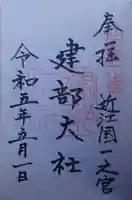 奉拝
近江国一之宮
建部大社
令和五年五月一日